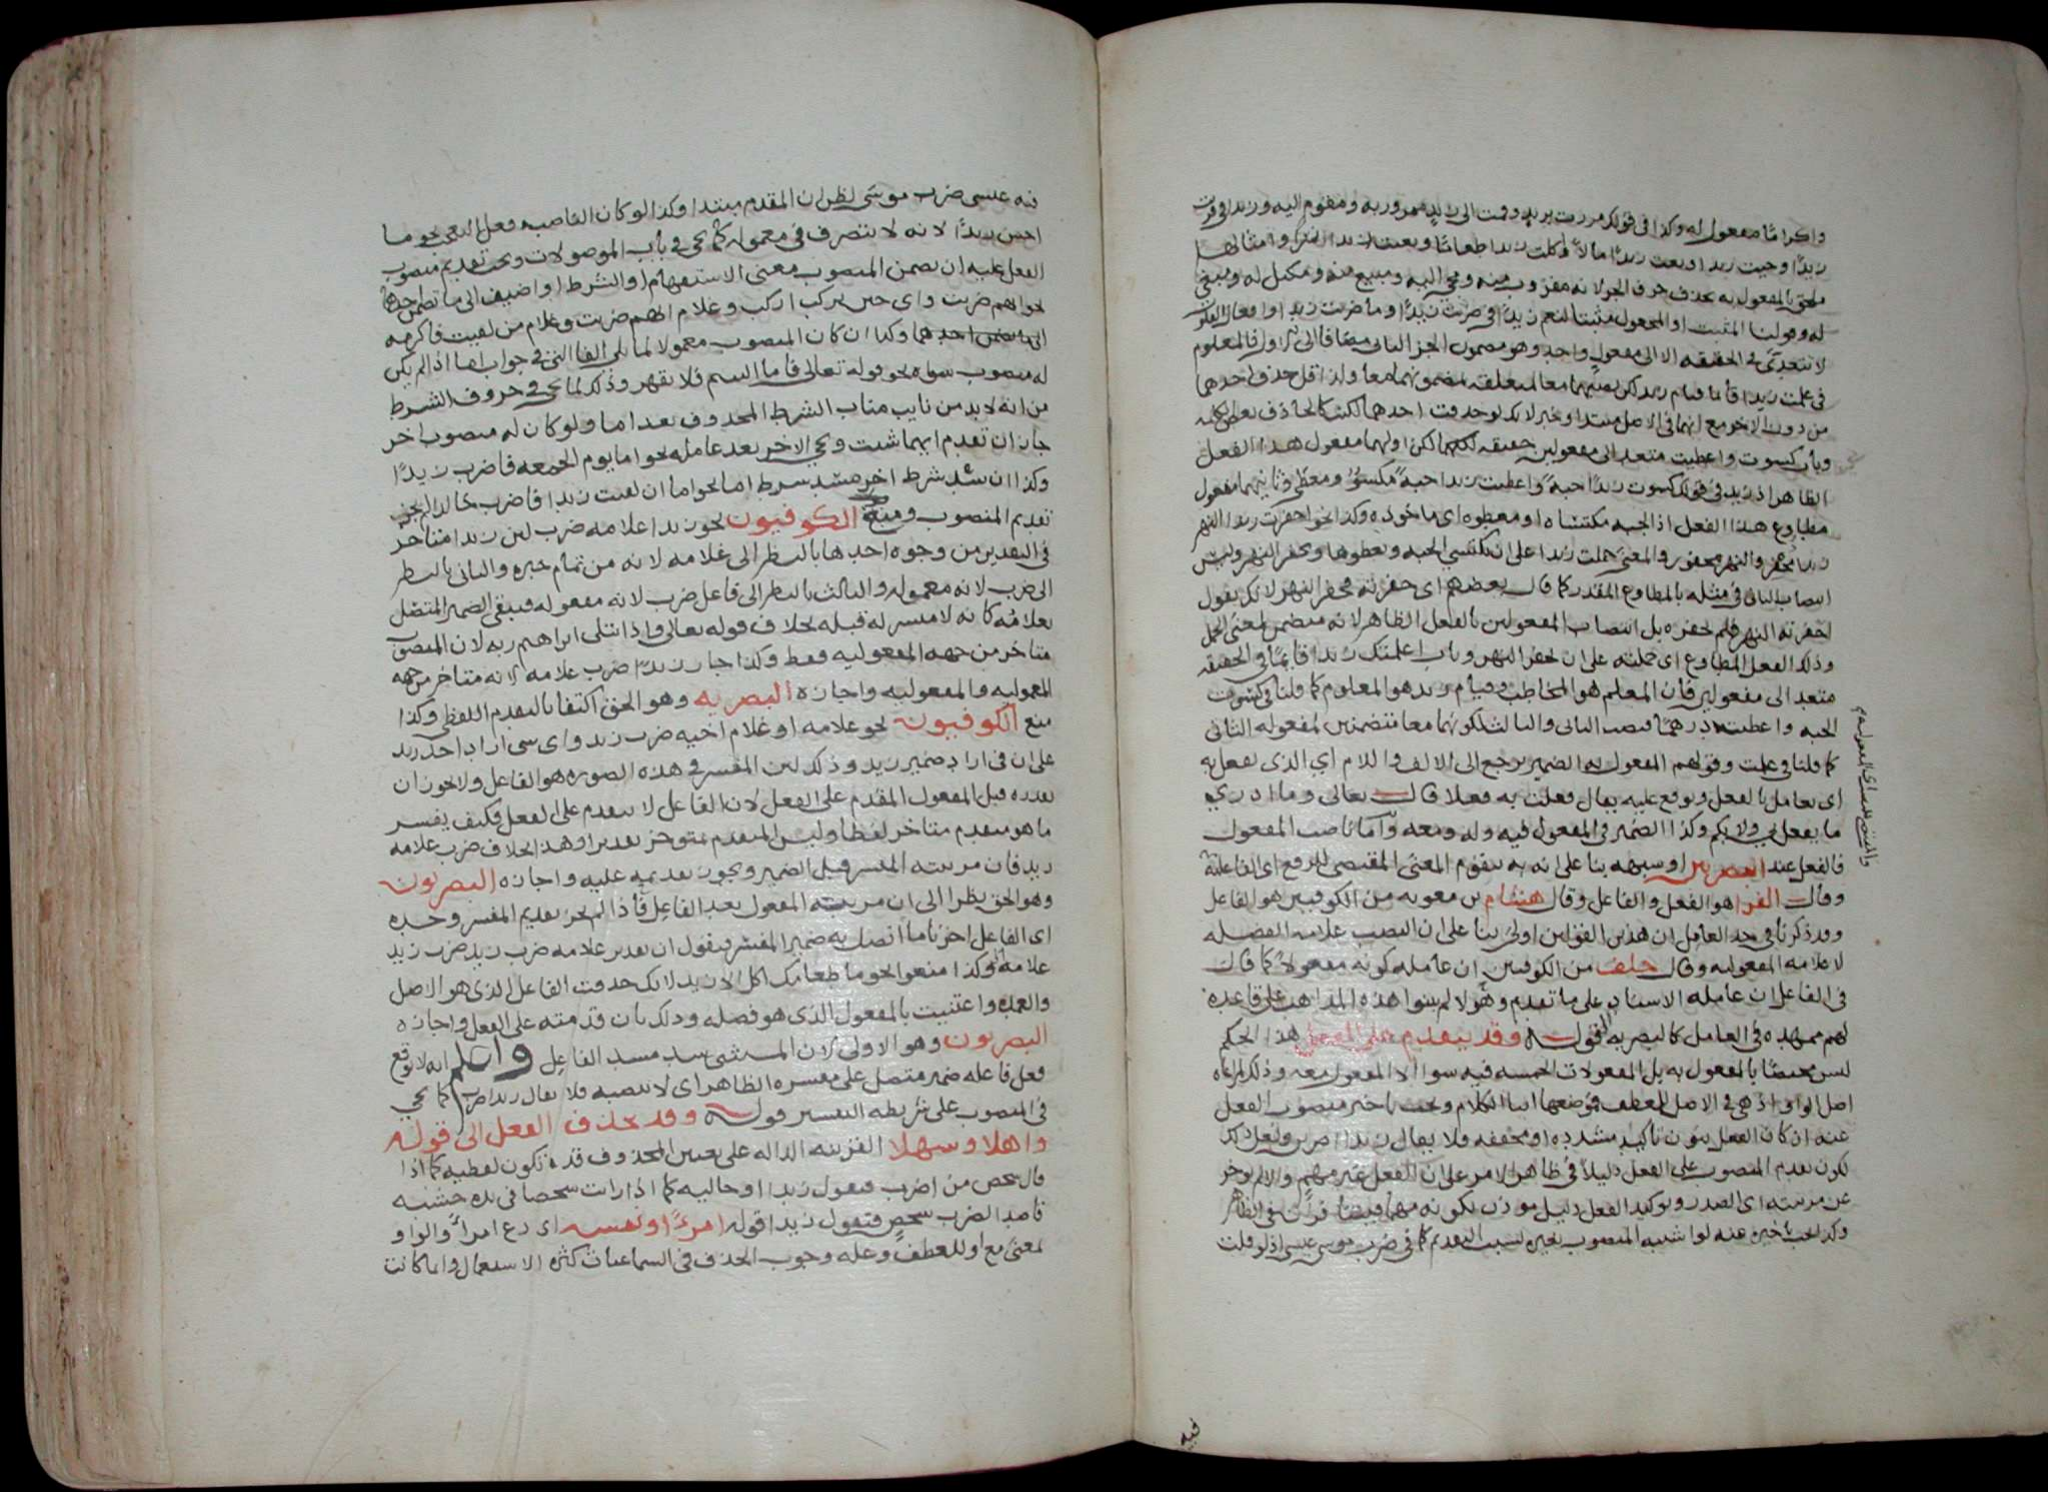 واكراما مفعول له وكذا في قولك مررت بزيد وقمت الى زيد ممرور به ومقوم اليه وزيدا في قربت
زيدا وجيت زيدا وبعت زيدا مالا وكلت زيدا طعاما وبعت زيدا
ملحق بالمفعول به بحذف حرف الجر لانه مقروب منه ومجي اليه ومبيع منه ومكيل له
له وقولنا المثبت او المجعول مثبتا لنعم زيدا في ضربت زيدا وما ضربت زيدا وافعال القلوب
لا تتعدى في الحقيقه الا الى مفعول واحد وهو مضمون الجز الثاني مضافا الى الاول فالمعلوم
في علمت زيدا قائما قيام زيد لكن نصبهما معا لتعلقه بمضمونهما معا ولذا قل حذف احدهما
من دون الاخر مع انهما في الاصل مبتدا وخبر لانك لو حذفت احدهما لكنت كالحاذف بعض الكلمه
وباب كسوت واعطيت متعد الى مفعولين حقيقه لكن اولهما مفعول هذا الفعل
الظاهر اذ زيد في قولك كسوت زيدا جبة واعطيت زيدا جبة مكسو ومعطى وثانيهما مفعول
مطاوع هذا الفعل اذ الجبه مكتساه او معطوه اي ماخوذه وكذا نحو احفرت زيدا النهر
زيد محفر والنهر محفور والمعنى حملت زيدا على ان يكتسي الجبه ويعطوها ويحفر النهر وليس
انتصاب الثاني في مثله بالمطاوع المقدر كما قال بعضهم اي حفرته فحفر النهر لانك تقول
احفرته النهر فلم يحفره بل انتصاب المفعولين بالفعل الظاهر لانه متضمن لمعنى الحمل
وذلك الفعل المطاوع اي حملته على ان يحفر النهر وباب اعلمتك زيدا قائما في الحقيقه
متعد الى مفعولين فان المعلم هو المخاطب وقيام زيد هو المعلوم كما قلنا في كسوت
الجبه واعطيت درهما فنصب الثاني والثالث لكونهما معا متضمنين لمفعوله الثاني
كما قلنا في علمت وقولهم المفعول به الضمير يرجع الى الالف واللام اي الذي يفعل به
اي يعامل بالفعل ويوقع عليه يقال فعلت به فعلا قال تعالى وما ادري
ما يفعل بي ولا بكم وكذا الضمير في المفعول فيه وله ومعه واما ناصب المفعول
فالفعل عند البصريين او شبهه بنا على انه به يتقوم المعنى المقتضي للرفع اي الفاعلية
وقال الفرا هو الفعل والفاعل وقال هشام بن معويه من الكوفيين هو الفاعل
وقد ذكرنا في حد العامل ان هذين القولين اولى بنا على ان النصب علامه الفضله
لا علامه المفعوليه وقال خلف من الكوفيين ان عامله كونه مفعولا كما قال
في الفاعل ان عامله الاسناد على ما تقدم وهولا لم يبنوا هذه المذاهب على قاعده
لهم ممهده في العامل كالبصريه قوله وقد يتقدم على الفعل هذا الحكم
ليس مختصا بالمفعول به بل المفعولات الخمسه فيه سوا الا المفعول معه وذلك لمراعاه
اصل الواو اذ هي في الاصل للعطف فموضعها اثنا الكلام ويجب تاخير منصوب الفعل
عنه ان كان الفعل بنون تاكيد مشدده او مخففه فلا يقال زيدا اضربن ولعل ذلك
لكون تقدم المنصوب على الفعل دليلا في ظاهر الامر على ان الفعل غير مهم والا لم يوخر
عن مرتبته اي الصدر وتوكيد الفعل دليل موذن بكونه مهما فيتنافران في الظاهر
وكذا يجب تاخيره عنه لو اشتبه المنصوب بغيره بسبب التقديم كما في ضرب موسى عيسى اذ لو قلت
والمقتضي للنصب اي المفعوليه
فيه
فيه عيسى ضرب موسى لظن ان المقدم مبتدا وكذا لو كان الناصب فعل التعجب نحو ما
احسن زيدا لانه لا يتصرف في معموله كما يجي في باب الموصولات ويجب تقديم منصوب
الفعل عليه ان تضمن المنصوب معنى الاستفهام او الشرط او اضيف الى ما تضمن احدهما
نحو ايهم ضربت واي حين يركب اركب وغلام ايهم ضربت وغلام من لقيت فاكرمه
وكذا ان كان المنصوب معمولا لما يلي الفا التي في جواب اما اذا لم يكن
له منصوب سواه نحو قوله تعالى فاما اليتيم فلا تقهر وذلك لما يجي في حروف الشرط
من انه لا بد من نايب مناب الشرط المحذوف بعد اما ولو كان له منصوب اخر
جاز ان تقدم ايهما شيت ويجي الاخر بعد عامله نحو اما يوم الجمعه فاضرب زيدا
وكذا ان سد شرط اخر مسد شرط اما نحو اما ان لقيت زيدا فاضرب خالدا لم يجز
تقديم المنصوب ومنع الكوفيون نحو زيدا غلامه ضرب لان زيدا متاخر
في التقدير من وجوه احدها بالنظر الى غلامه لانه من تمام خبره والثاني بالنظر
الى ضرب لانه معموله والثالث بالنظر الى فاعل ضرب لانه مفعوله فيبقى الضمير المتصل
بغلامه كانه لا مفسر له قبله بخلاف قوله تعالى واذ ابتلى ابراهيم ربه لان المنصوب
متاخر من جهه المفعوليه فقط وكذا جاز زيدا ضرب غلامه لانه متاخر من جهه
المعموليه والمفعوليه واجازه البصريه وهو الحق اكتفا بالتقدم اللفظي وكذا
منع الكوفيون نحو غلامه او غلام اخيه ضرب زيد واي شي اراد اخذ زيد
على ان في اراد ضمير زيد وذلك لان المفسر في هذه الصوره هو الفاعل ولا يجوز ان
تقدره قبل المفعول المقدم على الفعل لان الفاعل لا يتقدم على الفعل فكيف يفسر
ما هو متقدم متاخر لفظا وليس المتقدم بمتوخر تقديرا وهذا بخلاف ضرب غلامه
زيد فان مرتبته المفسر قبل الضمير ويجوز تقديمه عليه واجازه البصريون
وهو الحق نظرا الى ان مرتبه المفعول بعد الفاعل فاذا لم يجز تقديم المفسر وحده
اي الفاعل اخرنا ما اتصل به ضمير المفسر فيقول ان تقدير غلامه ضرب زيد ضرب زيد
غلامه وكذا منعوا نحو ما طعامك اكل الا زيد لانك حذفت الفاعل الذي هو الاصل
والعمده واعتنيت بالمفعول الذي هو فضله وذلك بان قدمته على الفعل واجازه
البصريون وهو الاولى لان المستثنى سد مسد الفاعل واعلم انه لا يوقع
فعل فاعله ضمير متصل على مفسره الظاهر اي لا ينصبه فلا يقال زيدا ضرب كما يجي
في المنصوب على شريطه التفسير قوله وقد يحذف الفعل الى قوله
واهلا وسهلا القرينه الداله على تعيين المحذوف قد تكون لفظيه كما اذا
قال شخص من اضرب فتقول زيدا او حاليه كما اذا رايت شخصا في يده خشبه
قاصدا لضرب شخص فتقول زيدا قوله امرءا ونفسه اي دع امرأ والواو
بمعنى مع او للعطف وعله وجوب الحذف في السماعيات كثره الاستعمال وانما كانت